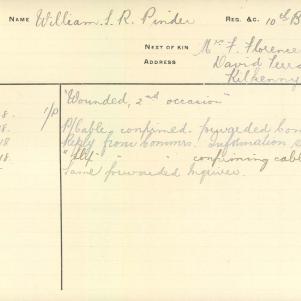 NAME William. S. R. Pinder REG. &C. 10th B
NEXT OF KIN Mrs F. Florence
ADDRESS David Terra
Kilkenny
"Wounded, 2nd occasion"
8. 1/P P/Cable confirmed. forwarded
18 Reply from Commrs. Information
18. "Slip" " confirming cabl
Same forwarded Inquirer.